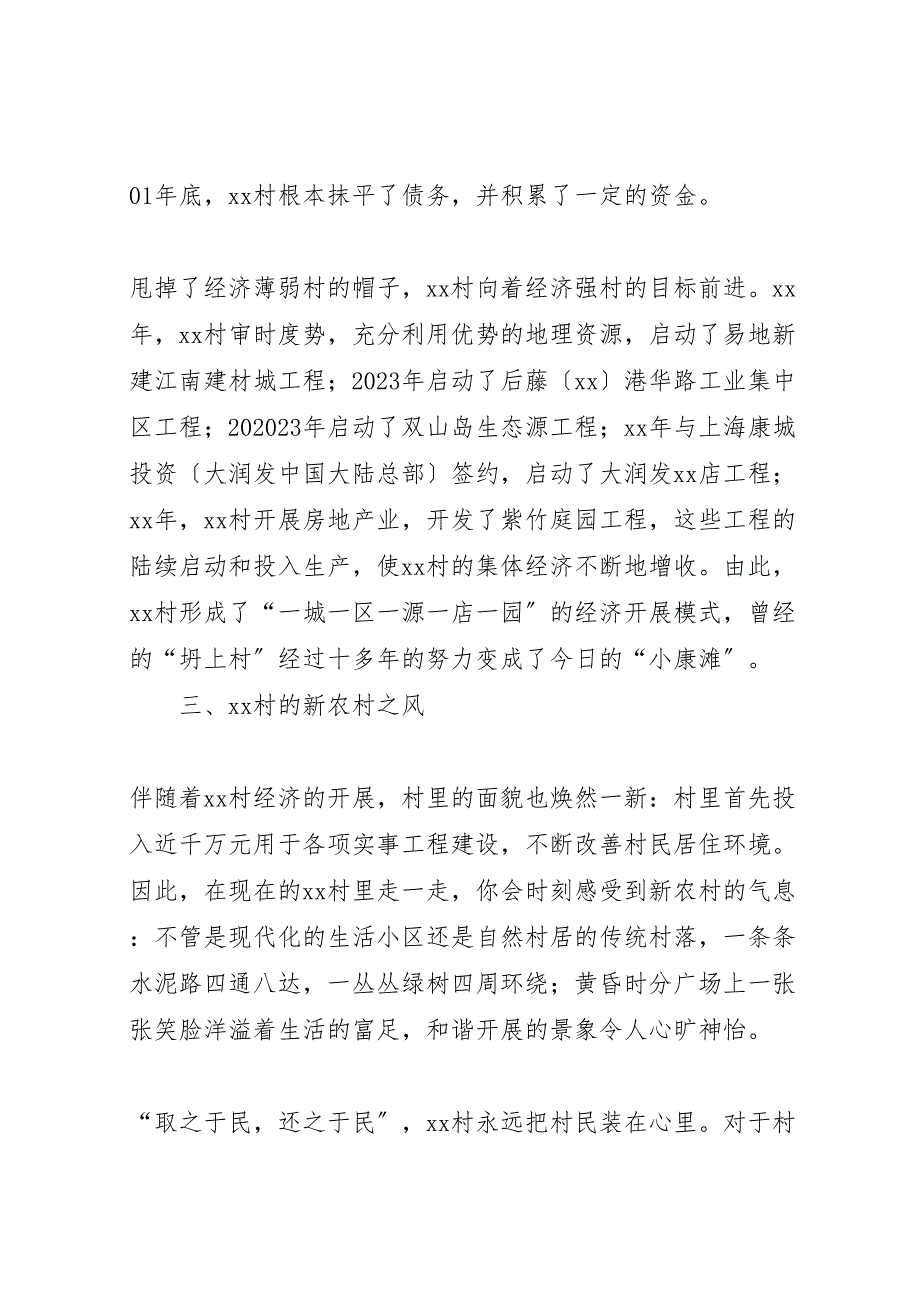 01年底，xx村根本抹平了债务，并积累了一定的资金。
甩掉了经济薄弱村的帽子，xx村向着经济强村的目标前进。xx
年，xx村审时度势，充分利用优势的地理资源，启动了易地新
建江南建材城工程；2023年启动了后藤〔xx〕港华路工业集中
区工程；202023年启动了双山岛生态源工程；xx年与上海康城
投资〔大润发中国大陆总部〕签约，启动了大润发xx店工程；
xx年，xx村开展房地产业，开发了紫竹庭园工程，这些工程的
陆续启动和投入生产，使xx村的集体经济不断地增收。由此，
xx村形成了“一城一区一源一店一园〞的经济开展模式，曾经
的“坍上村〞经过十多年的努力变成了今日的“小康滩〞。
三、xx村的新农村之风
伴随着xx村经济的开展，村里的面貌也焕然一新：村里首先投
入近千万元用于各项实事工程建设，不断改善村民居住环境。
因此，在现在的xx村里走一走，你会时刻感受到新农村的气息
：不管是现代化的生活小区还是自然村居的传统村落，一条条
水泥路四通八达，一丛丛绿树四周环绕；黄昏时分广场上一张
张笑脸洋溢着生活的富足，和谐开展的景象令人心旷神怡。
“取之于民，还之于民〞，xx村永远把村民装在心里。对于村